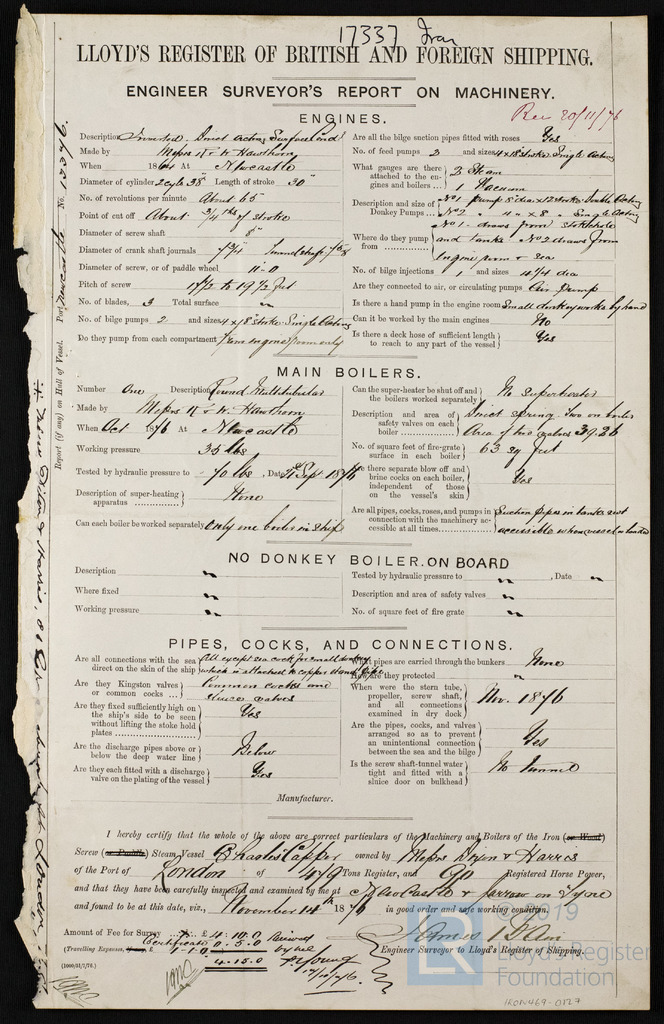 17337 Iron
LLOYD'S REGISTER OF BRITISH AND FOREIGN SHIPPING.
ENGINEER SURVEYOR'S REPORT ON MACHINERY.
Rec 20/11/76
ENGINES.
Description Inverted Direct Acting Surface Cond
Made by Messrs R & W. Hawthorn
When 1864 At Newcastle
Diameter of cylinder 2 cyls 38" Length of stroke 30"
No. of revolutions per minute About 65
Point of cut off About 3/4 ths of stroke
Diameter of screw shaft 8"
Diameter of crank shaft journals 7 3/4 Tunnel shaft
Diameter of screw, or of paddle wheel 11-0
Pitch of screw 17 1/2 to 19 1/2 feet
No. of blades, 3 Total surface "
No. of bilge pumps 2 and sizes 4 x 18 stroke Single Acting
Do they pump from each compartment From engine room only
Are all the bilge suction pipes fitted with roses Yes
No. of feed pumps 2 and sizes 4 x 18 stroke Single Acting
What gauges are there attached to the engines and boilers 2 Steam
1 Vacuum
Description and size of Donkey Pumps No 1 pump 5 dia x 12 stroke Double Acting
No 2 " 4 x 8 " Single Acting
Where do they pump from No 1 draws from stokehole
and tanks No 2 draws from
Engine room & sea
No. of bilge injections 1 and sizes 4 1/4 dia
Are they connected to air, or circulating pumps Air Pump
Is there a hand pump in the engine room Small donkey works by hand
Can it be worked by the main engines No
Is there a deck hose of sufficient length to reach to any part of the vessel Yes
MAIN BOILERS.
Number One Description Round Multitubular
Made by Messrs R & W. Hawthorn
When Oct 1876 At Newcastle
Working pressure 35 lbs
Tested by hydraulic pressure to 70 lbs, Date Sept 1876
Description of super-heating apparatus None
Can each boiler be worked separately Only one boiler in ship
Can the super-heater be shut off and the boilers worked separately No Superheater
Description and area of safety valves on each boiler Direct spring. Two on boiler
Area of two valves 39.26
No. of square feet of fire-grate surface in each boiler 63 sq feet
Are there separate blow off and brine cocks on each boiler, independent of those on the vessel's skin Yes
Are all pipes, cocks, roses, and pumps in connection with the machinery accessible at all times Suction pipes in tanks not
accessible when vessel is loaded
NO DONKEY BOILER ON BOARD
Description "
Where fixed "
Working pressure "
Tested by hydraulic pressure to ", Date "
Description and area of safety valves "
No. of square feet of fire grate "
PIPES, COCKS, AND CONNECTIONS.
Are all connections with the sea direct on the skin of the ship All except sea cock for small donkey
which is attached to copper stand pipe
Are they Kingston valves or common cocks Common cocks and
sluice valves
Are they fixed sufficiently high on the ship's side to be seen without lifting the stoke hold plates Yes
Are the discharge pipes above or below the deep water line Below
Are they each fitted with a discharge valve on the plating of the vessel Yes
What pipes are carried through the bunkers None
How are they protected "
When were the stern tube, propeller, screw shaft, and all connections examined in dry dock Nov. 1876
Are the pipes, cocks, and valves arranged so as to prevent an unintentional connection between the sea and the bilge Yes
Is the screw shaft-tunnel water tight and fitted with a sluice door on bulkhead No tunnel
Manufacturer.
I hereby certify that the whole of the above are correct particulars of the Machinery and Boilers of the Iron (or Wood)
Screw (or Paddle) Steam Vessel Charles Capper owned by Messrs Dixon & Harris
of the Port of London of 1079 Tons Register, and 90 Registered Horse Power,
and that they have been carefully inspected and examined by me at Newcastle & Jarrow on Tyne
and found to be at this date, viz., November 14th 1876 in good order and safe working condition.
Amount of Fee for Survey £ 4.10.0 Received
Certificate 0.5.0 by me
(Travelling Expenses, if any, £
4.15.0
Engineer Surveyor to Lloyd's Register of Shipping.
(1000/21/7/76.)
Report (if any) on Hull of Vessel. Port No.
© 2019
LR
Lloyd's Register
Foundation
IRON469-0127